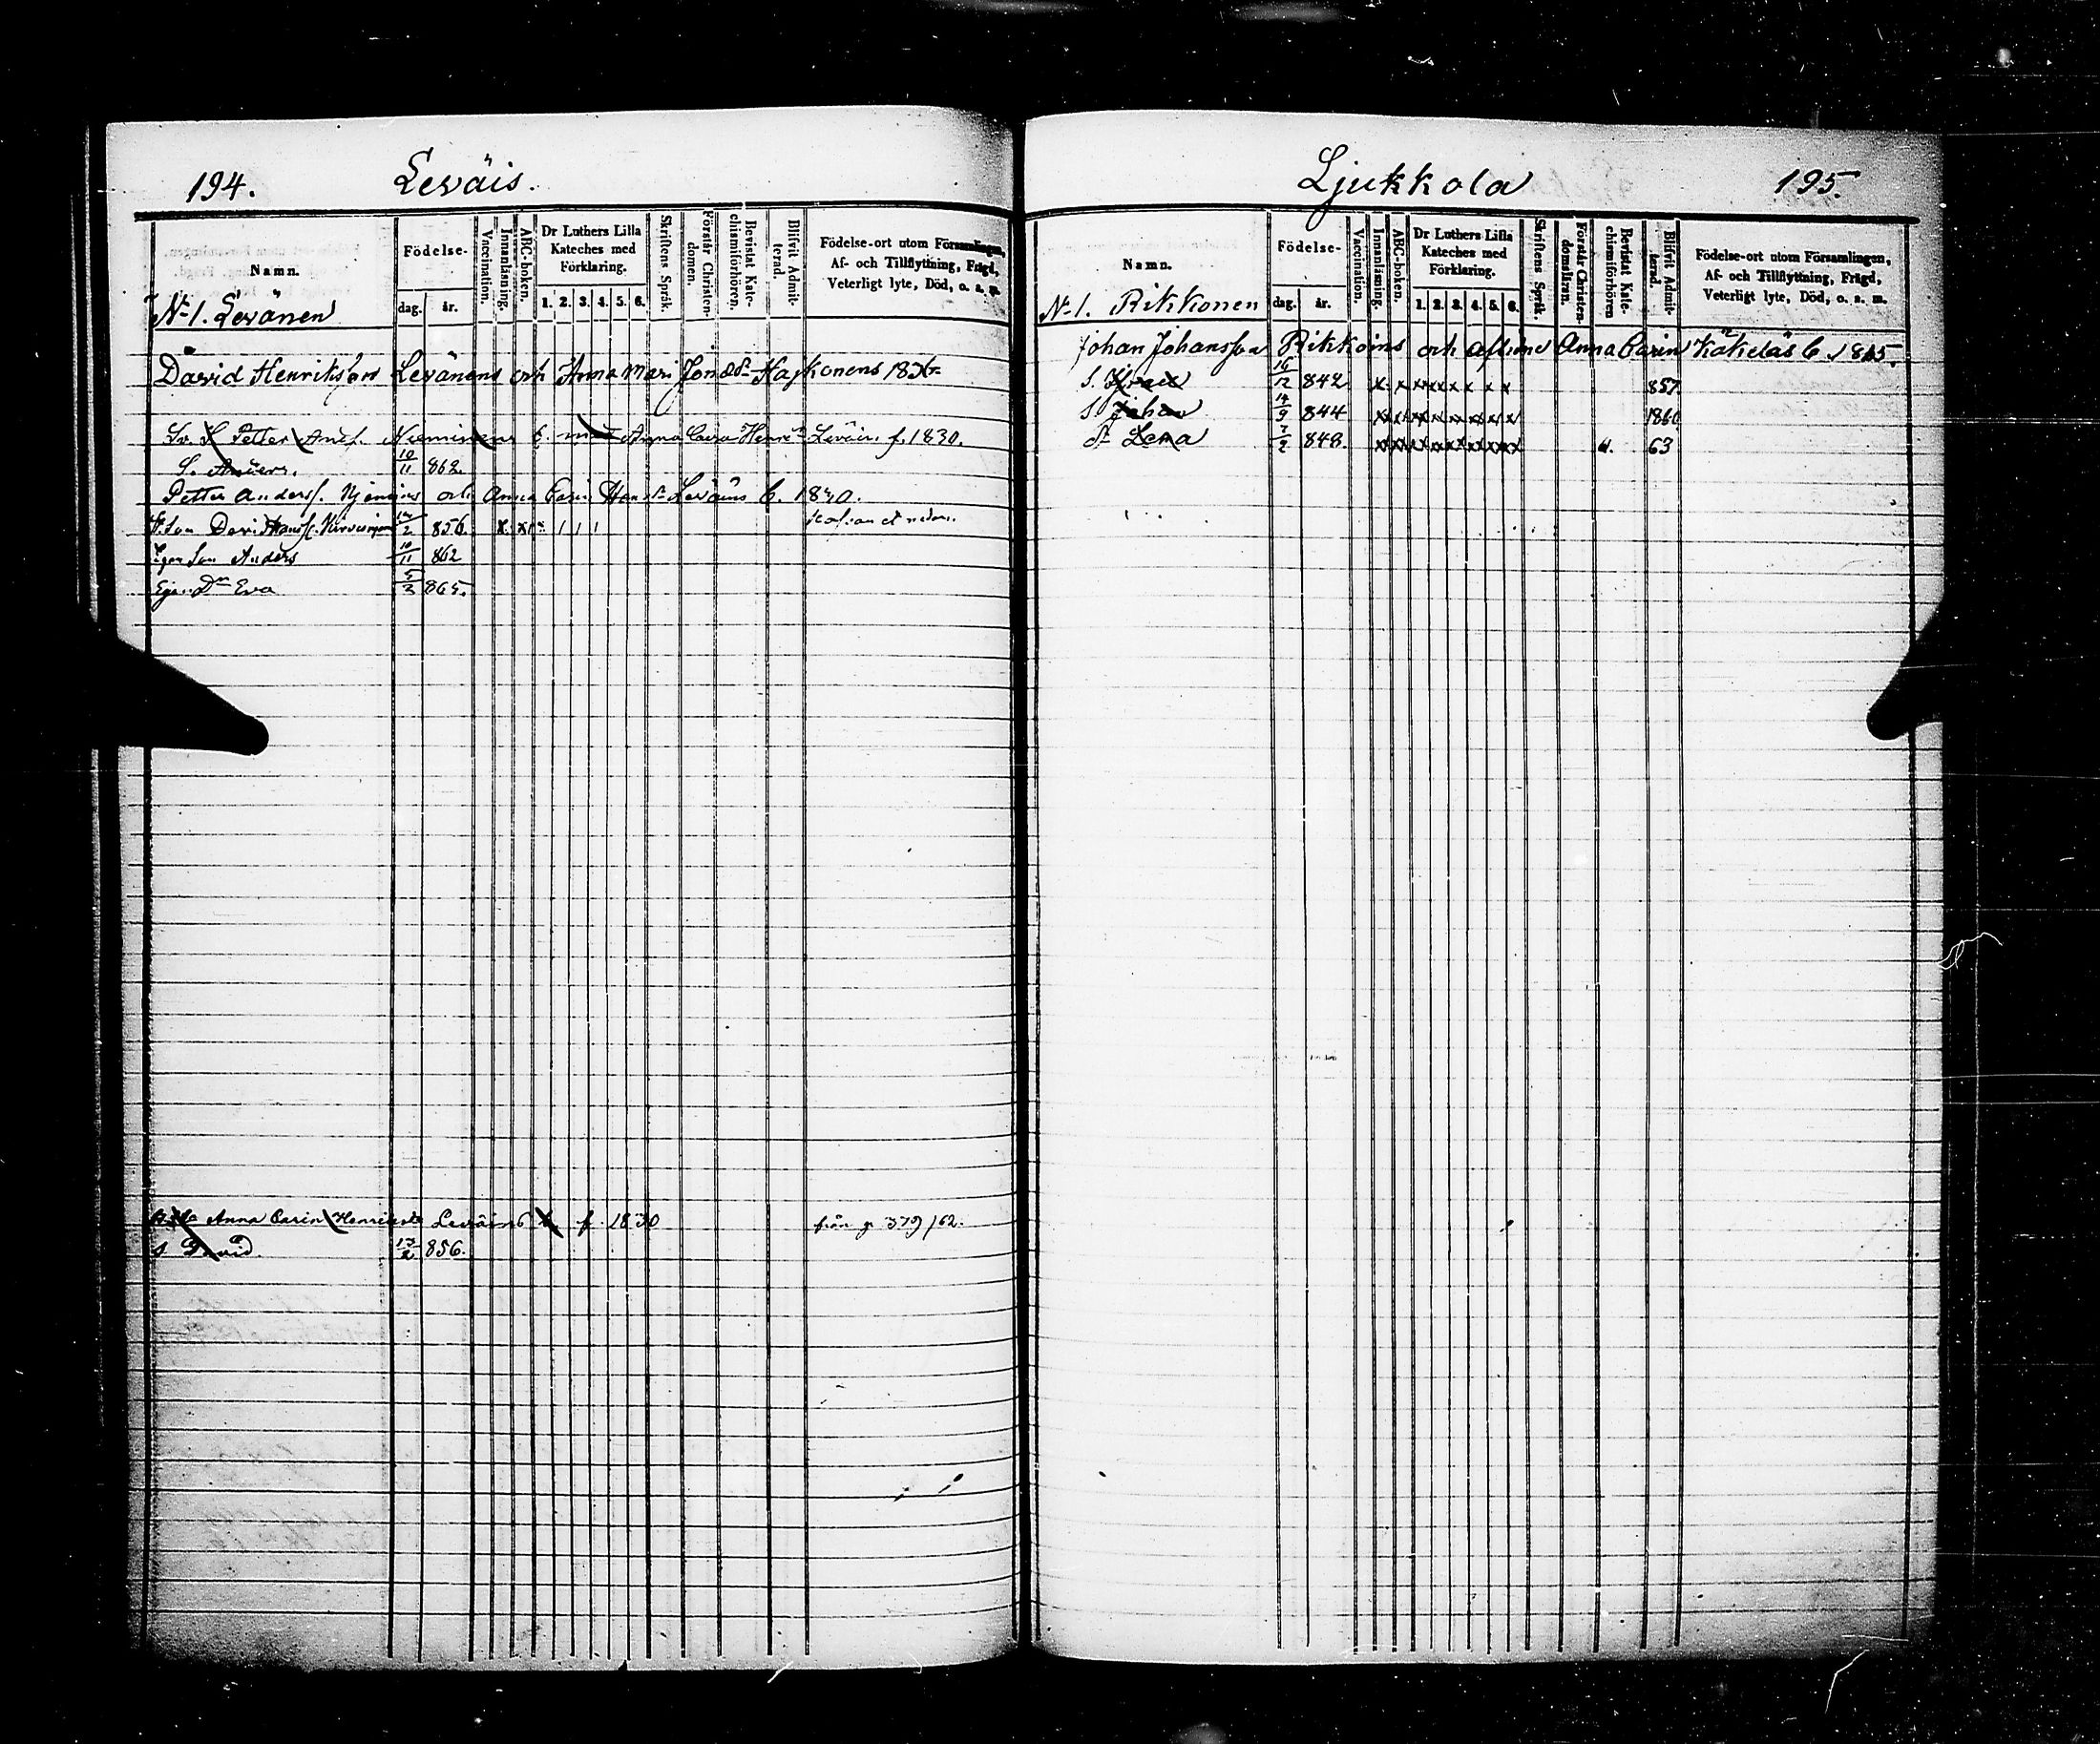 194. Leväis.
Namn.
Födelse-
dag. år.
Vaccination.
Innanläsning.
ABC-boken.
Dr Luthers Lilla Kateches med Förklaring.
1. 2. 3. 4. 5. 6.
Skriftens Språk.
Förstår Christendomen.
Bevistat Katechismiförhören.
Blifvit Admitterad.
Födelse-ort utom Församlingen, Af- och Tillflyttning, Frägd, Veterligt lyte, Död, o. s. m.
N-1. Levänen
David Henriksson Levänens och Anna Mari Jonæ dr Hajkonens 1836
Petter And. Nieminens Anna Carin Henr. Leväin. f. 1830.
S. Anders. 10/11 862.
Petter Anders. Njemins och Anna Carin Hans dr Leväins C. 1840.
Son David Hans 2 856. x
Egen Son Anders 10/11 862
Egen Dr Eva 5/3 865.
Anna Carin Henriksdr Leväins f. 1830 från p 379/62.
S David 13/2 856.
Ljukkola 195.
Namn.
Födelse-
dag. år.
Vaccination.
Innanläsning.
ABC-boken.
Dr Luthers Lilla Kateches med Förklaring.
1. 2. 3. 4. 5. 6.
Skriftens Språk.
Förstår Christendomsläran.
Bevistat Katechismiförhören
Blifvit Admitterad.
Födelse-ort utom Församlingen, Af- och Tillflyttning, Frägd, Veterligt lyte, Död, o. s. m.
N-1. Rikkonen
Johan Johansson Rikkoins och Anna Carin
S. 16/12 842 x x x x x x x x 857
S Johan 14/9 844 x x x x x x x x 1860
Dr Lena 7/2 848. x x x x x x x x 63